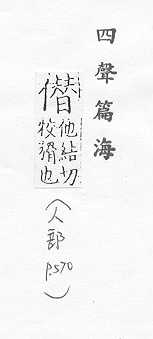 四聲篇海
僣
他結切
狡猾也
(人部 P.570)